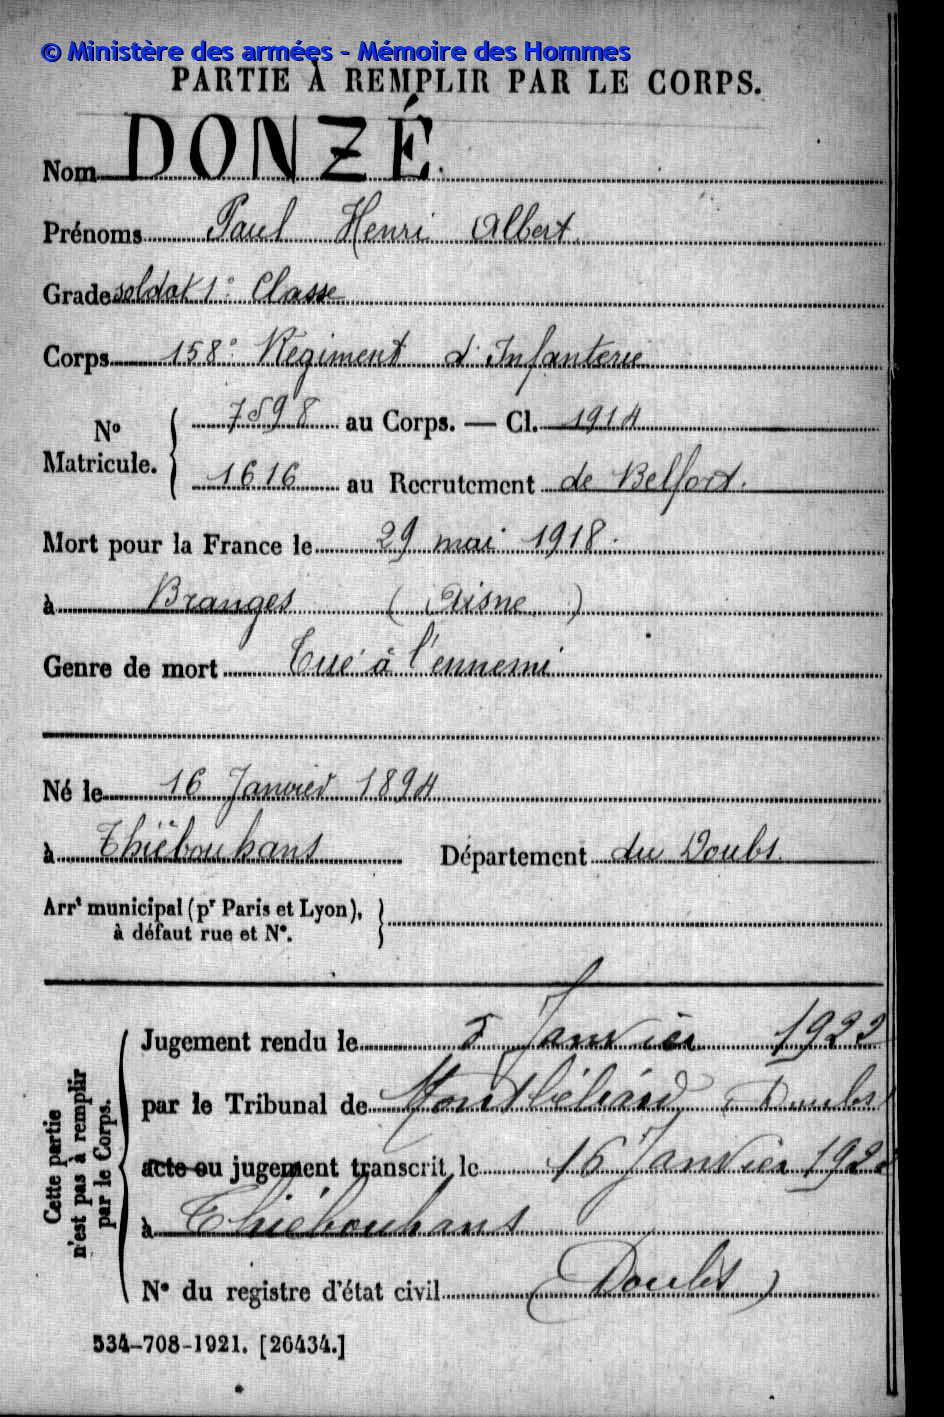 © Ministère des armées - Mémoire des Hommes
PARTIE À REMPLIR PAR LE CORPS.
Nom DONZÉ.
Prénoms Paul Henri Albert
Grade soldat 1° Classe
Corps 158° Régiment d'Infanterie
N° Matricule. { 7598 au Corps. — Cl. 1914
1616 au Recrutement de Belfort.
Mort pour la France le 29 mai 1918.
à Branges (Aisne)
Genre de mort Tué à l'ennemi
Né le 16 Janvier 1894
à Thiébouhans Département du Doubs
Arrt municipal (pr Paris et Lyon), }
à défaut rue et N°.
Cette partie
n'est pas à remplir
par le Corps.
Jugement rendu le 5 Janvier 1922
par le Tribunal de Montbéliard (Doubs)
acte ou jugement transcrit le 16 Janvier 1922
à Thiébouhans
N° du registre d'état civil (Doubs)
534-708-1921. [26434.]